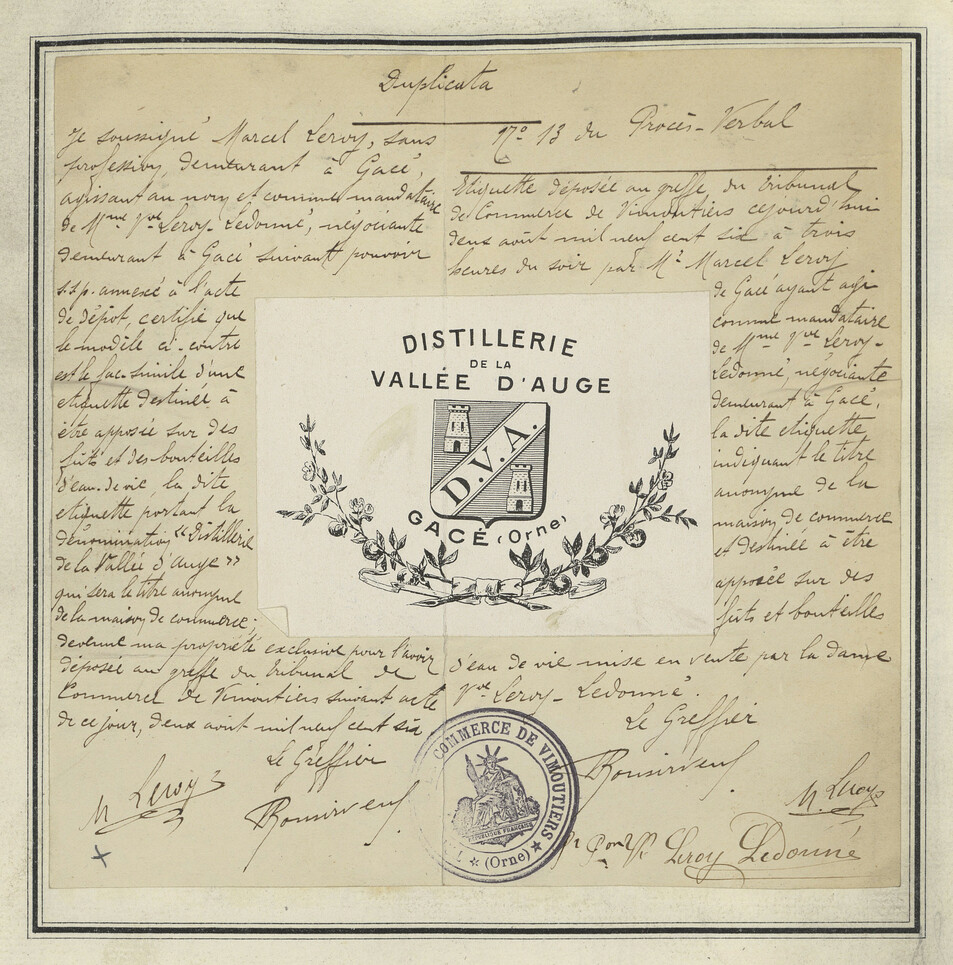 Duplicata
Je soussigné Marcel Leroy, sans
profession, demeurant à Gacé,
agissant au nom et comme mandataire
de Mme Vve Leroy-Ledonné, négociante
demeurant à Gacé suivant pouvoir
s.s.p. annexé à l'acte
de dépôt, certifie que
le modèle ci-contre
est le fac-simile d'une
etiquette destinée à
être apposée sur des
fûts et des bouteilles
d'eau-de-vie, la dite
etiquette portant la
dénomination "Distillerie
de la Vallée d'Auge"
qui sera le titre anonyme
de la maison de commerce;
devenue ma propriété exclusive pour l'avoir
déposée au greffe du Tribunal de
Commerce de Vimoutiers suivant acte
de ce jour, deux août mil neuf cent six
Le Greffier
M Leroy
Bonsirven
N° 13 du Procès-Verbal
Etiquette déposée au greffe du Tribunal
de Commerce de Vimoutiers cejourd'hui
deux août mil neuf cent six à trois
heures du soir par Mr Marcel Leroy
de Gacé ayant agi
comme mandataire
de Mme Vve Leroy-
Ledonné, négociante
demeurant à Gacé,
la dite etiquette
indiquant le titre
anonyme de la
maison de commerce
et destinée à être
apposée sur des
fûts et bouteilles
d'eau de vie mise en vente par la dame
Vve Leroy-Ledonné.
Le Greffier
Bonsirven
M. Leroy
Pon Vve Leroy Ledonné
DISTILLERIE
DE LA
VALLÉE D'AUGE
D.V.A.
GACÉ (Orne)
COMMERCE DE VIMOUTIERS
RÉPUBLIQUE FRANÇAISE
(Orne)